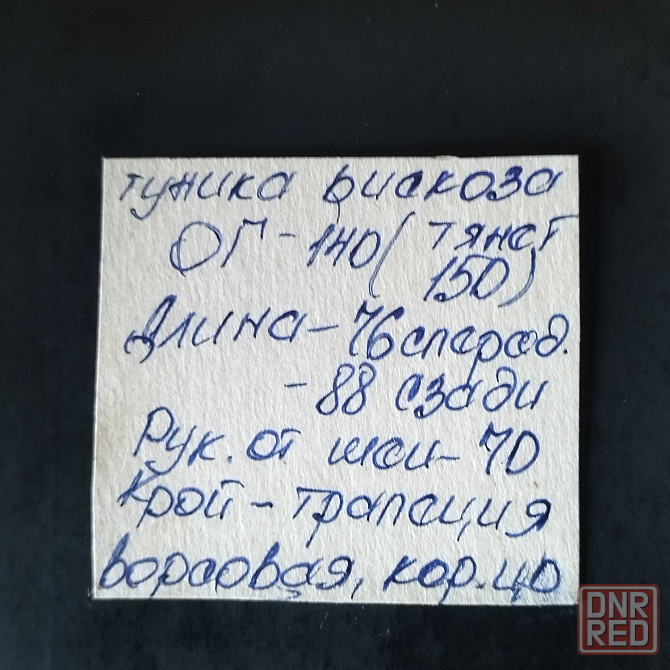 туника вискоза
ОГ - 140 ( тянет
150)
Длина - 76 сперед.
- 88 сзади
Рук. от шеи - 70
Крой - трапеция
ворсовая, кор.
DNR
RED